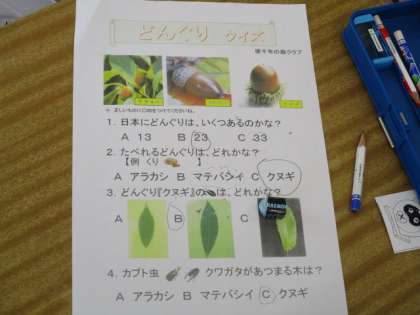 どんぐり クイズ
1. 日本にどんぐりは、いくつあるのかな?
A 13 B 23 C 33
2. たべれるどんぐりは、どれかな?
【例 くり 】
A アラカシ B マテバシイ C クヌギ
3. どんぐり『クヌギ』の は、どれかな?
A B C
4. カブト虫 クワガタがあつまる木は?
A アラカシ B マテバシイ C クヌギ